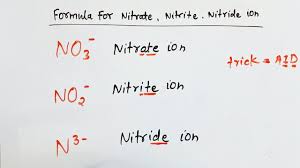 Formula For Nitrate, Nitrite, Nitride ion
NO₃⁻ Nitrate ion
trick = AID
NO₂⁻ Nitrite ion
N³⁻ Nitride ion